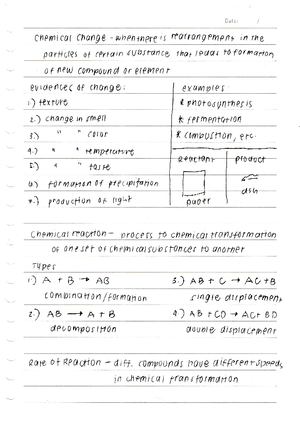 Date: /
Chemical Change - when there is rearrangement in the
particles of certain substance that leads to formation
of new compound or element
evidences of change:
1.) texture
2.) change in smell
3.) " " color
4.) " " temperature
5.) " " taste
6.) formation of precipitation
7.) production of light
examples
* photosynthesis
* fermentation
* combustion, etc.
reactant
product
paper
ash
Chemical reaction - process to chemical transformation
of one set of chemical substances to another
Types
1.) A + B → AB
combination/formation
2.) AB → A + B
decomposition
3.) AB + C → AC + B
single displacement
4.) AB + CD → AC + BD
double displacement
Rate of Reaction - diff. compounds have different speeds
in chemical transformation